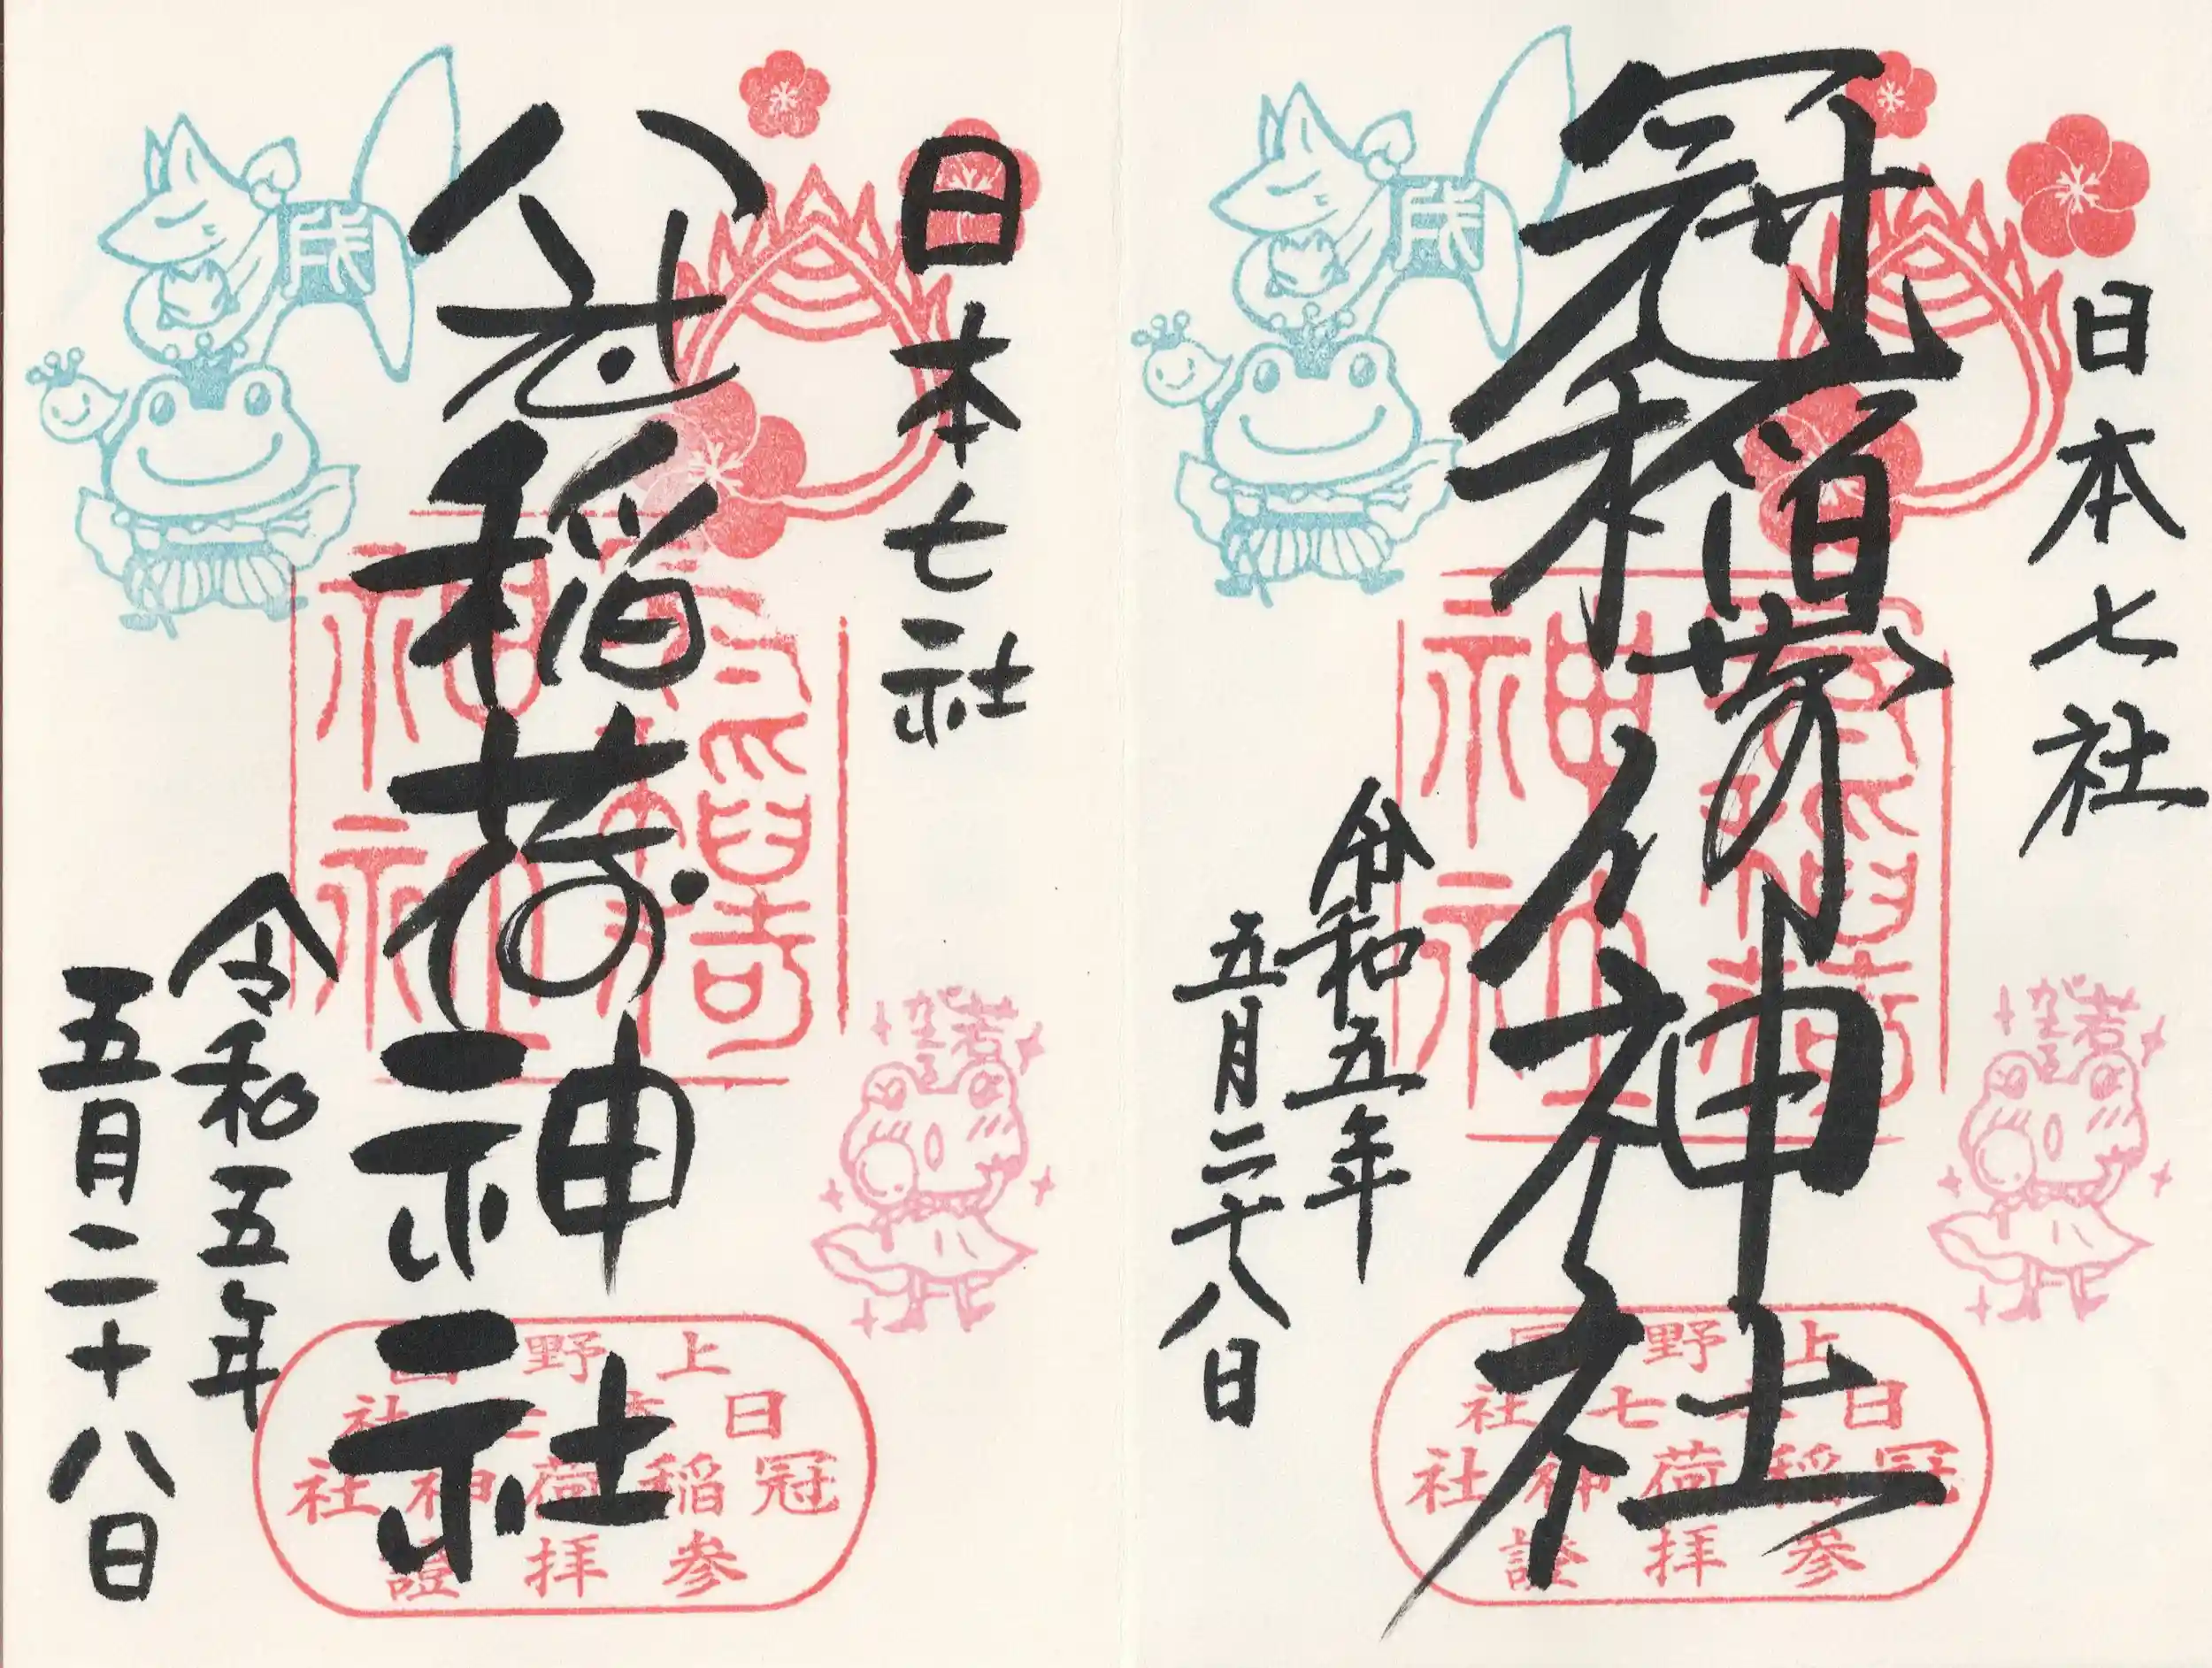 日本七社
冠稲荷神社
令和五年
五月二十八日
成
若
上野国
日本七社
冠稲荷神社
参拝證
日本七社
冠稲荷神社
令和五年
五月二十八日
成
若
上野国
日本七社
冠稲荷神社
参拝證